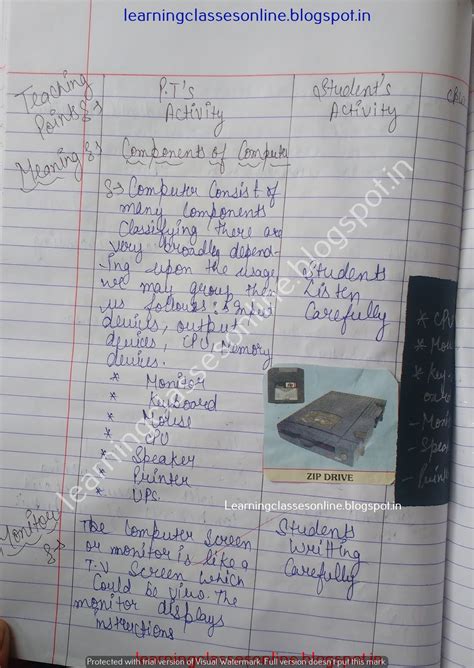 learningclassesonline.blogspot.in
Teaching Points :-
P.T's Activity
Student's Activity
Meaning :-
Components of Computer
:→ Computer Consist of
many components
Classifying there are
very broadly depend-
ing upon the usage
we may group them
us follows: Input
devices, output
devices, CPU, Memory
devices.
* Monitor
* Keyboard
* Mouse
* CPU
* Speaker
* Printer
* UPS.
Students
Listen
Carefully
* CPU
* Mou
* Key-
oard
- Moni
- Spea
- Printe
ZIP DRIVE
Learningclassesonline.blogspot.in
learningclassesonline.blogspot.in
Monitor :-
The Computer Screen
or monitor is like a
T.V Screen which
Could be The
monitor displays
instructions
Students
Writting
Carefully
Protected with trial version of Visual Watermark. Full version doesn't put this mark.
learningclassesonline.blogspot.in